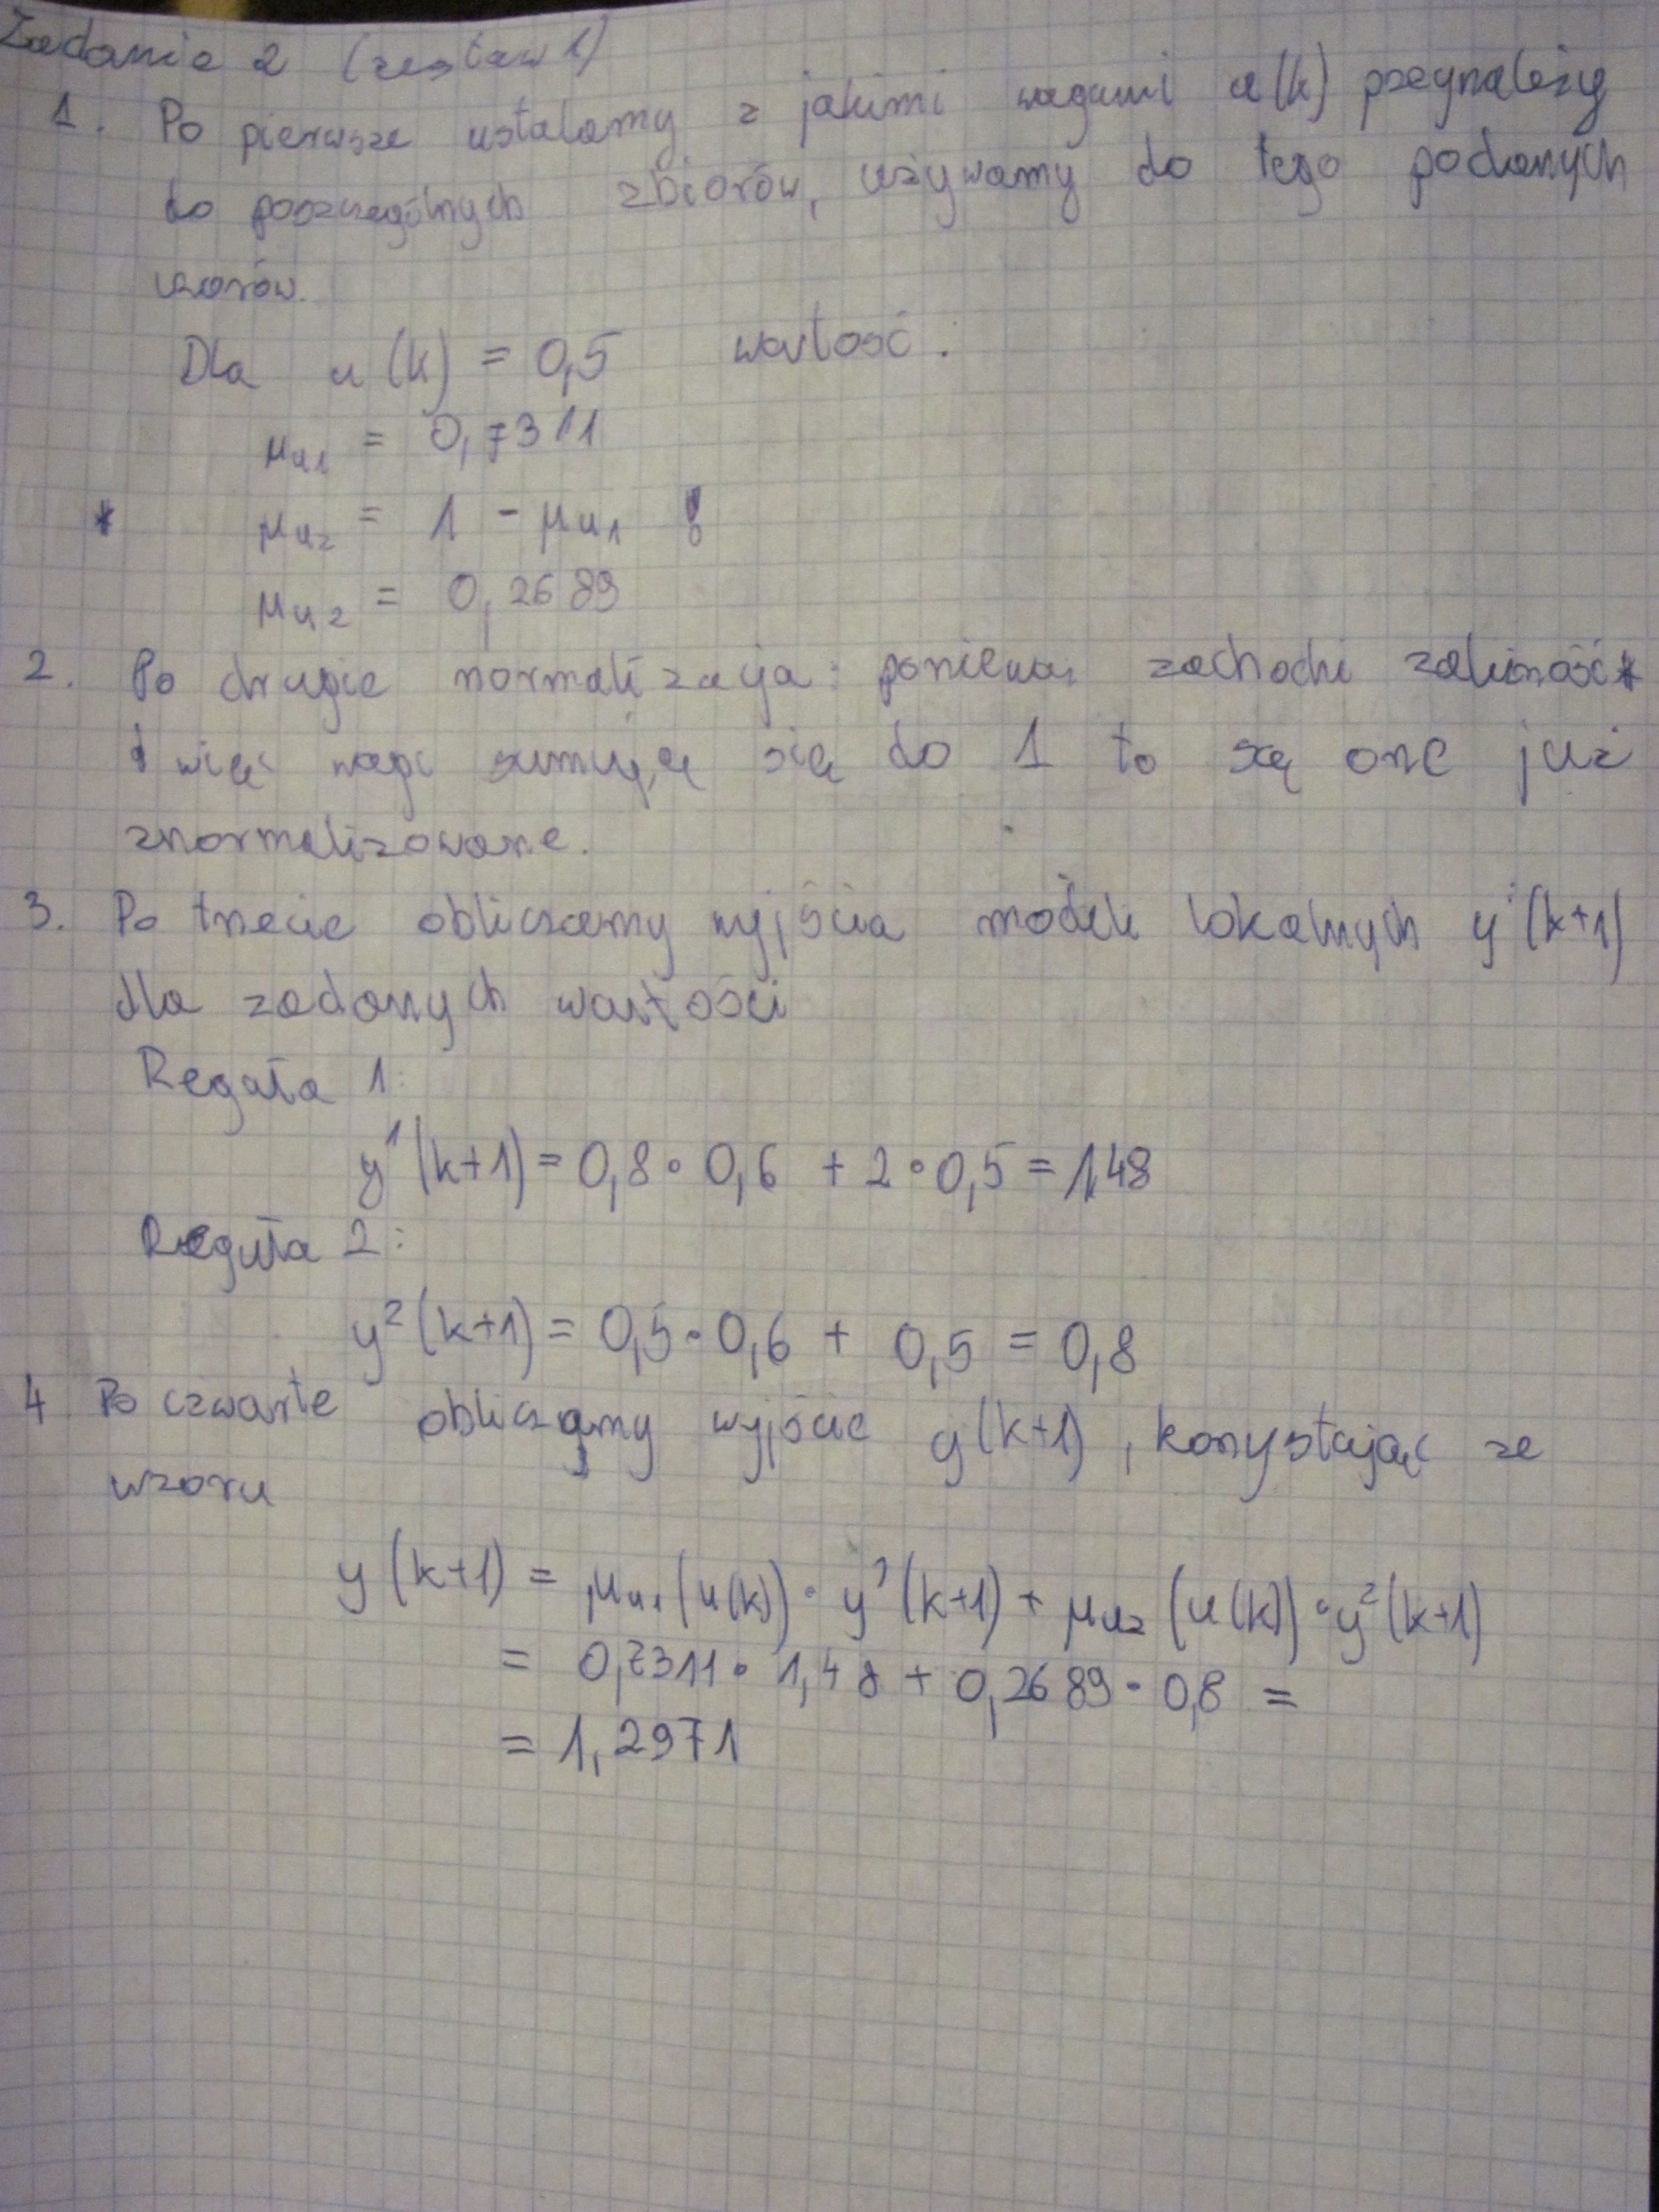 Zadanie 2 (zestaw 1)
1. Po pierwsze ustalamy z jakimi wagami u(k) przynależy
do poszczególnych zbiorów, używamy do tego podanych
wzorów.
Dla u(k) = 0,5 wartość:
μu1 = 0,7311
* μu2 = 1 - μu1 !
μu2 = 0,2689
2. Po drugie normalizacja: ponieważ zachodzi zależność *
i więc wagi sumują się do 1 to są one już
znormalizowane.
3. Po trzecie obliczamy wyjścia modeli lokalnych yⁱ(k+1)
dla zadanych wartości
Reguła 1:
y¹(k+1) = 0,8 • 0,6 + 2 • 0,5 = 1,48
Reguła 2:
y²(k+1) = 0,5 • 0,6 + 0,5 = 0,8
4 Po czwarte obliczamy wyjście y(k+1), korzystając ze
wzoru
y(k+1) = μu1(u(k)) • y¹(k+1) + μu2(u(k)) • y²(k+1)
= 0,7311 • 1,48 + 0,2689 • 0,8 =
= 1,2971